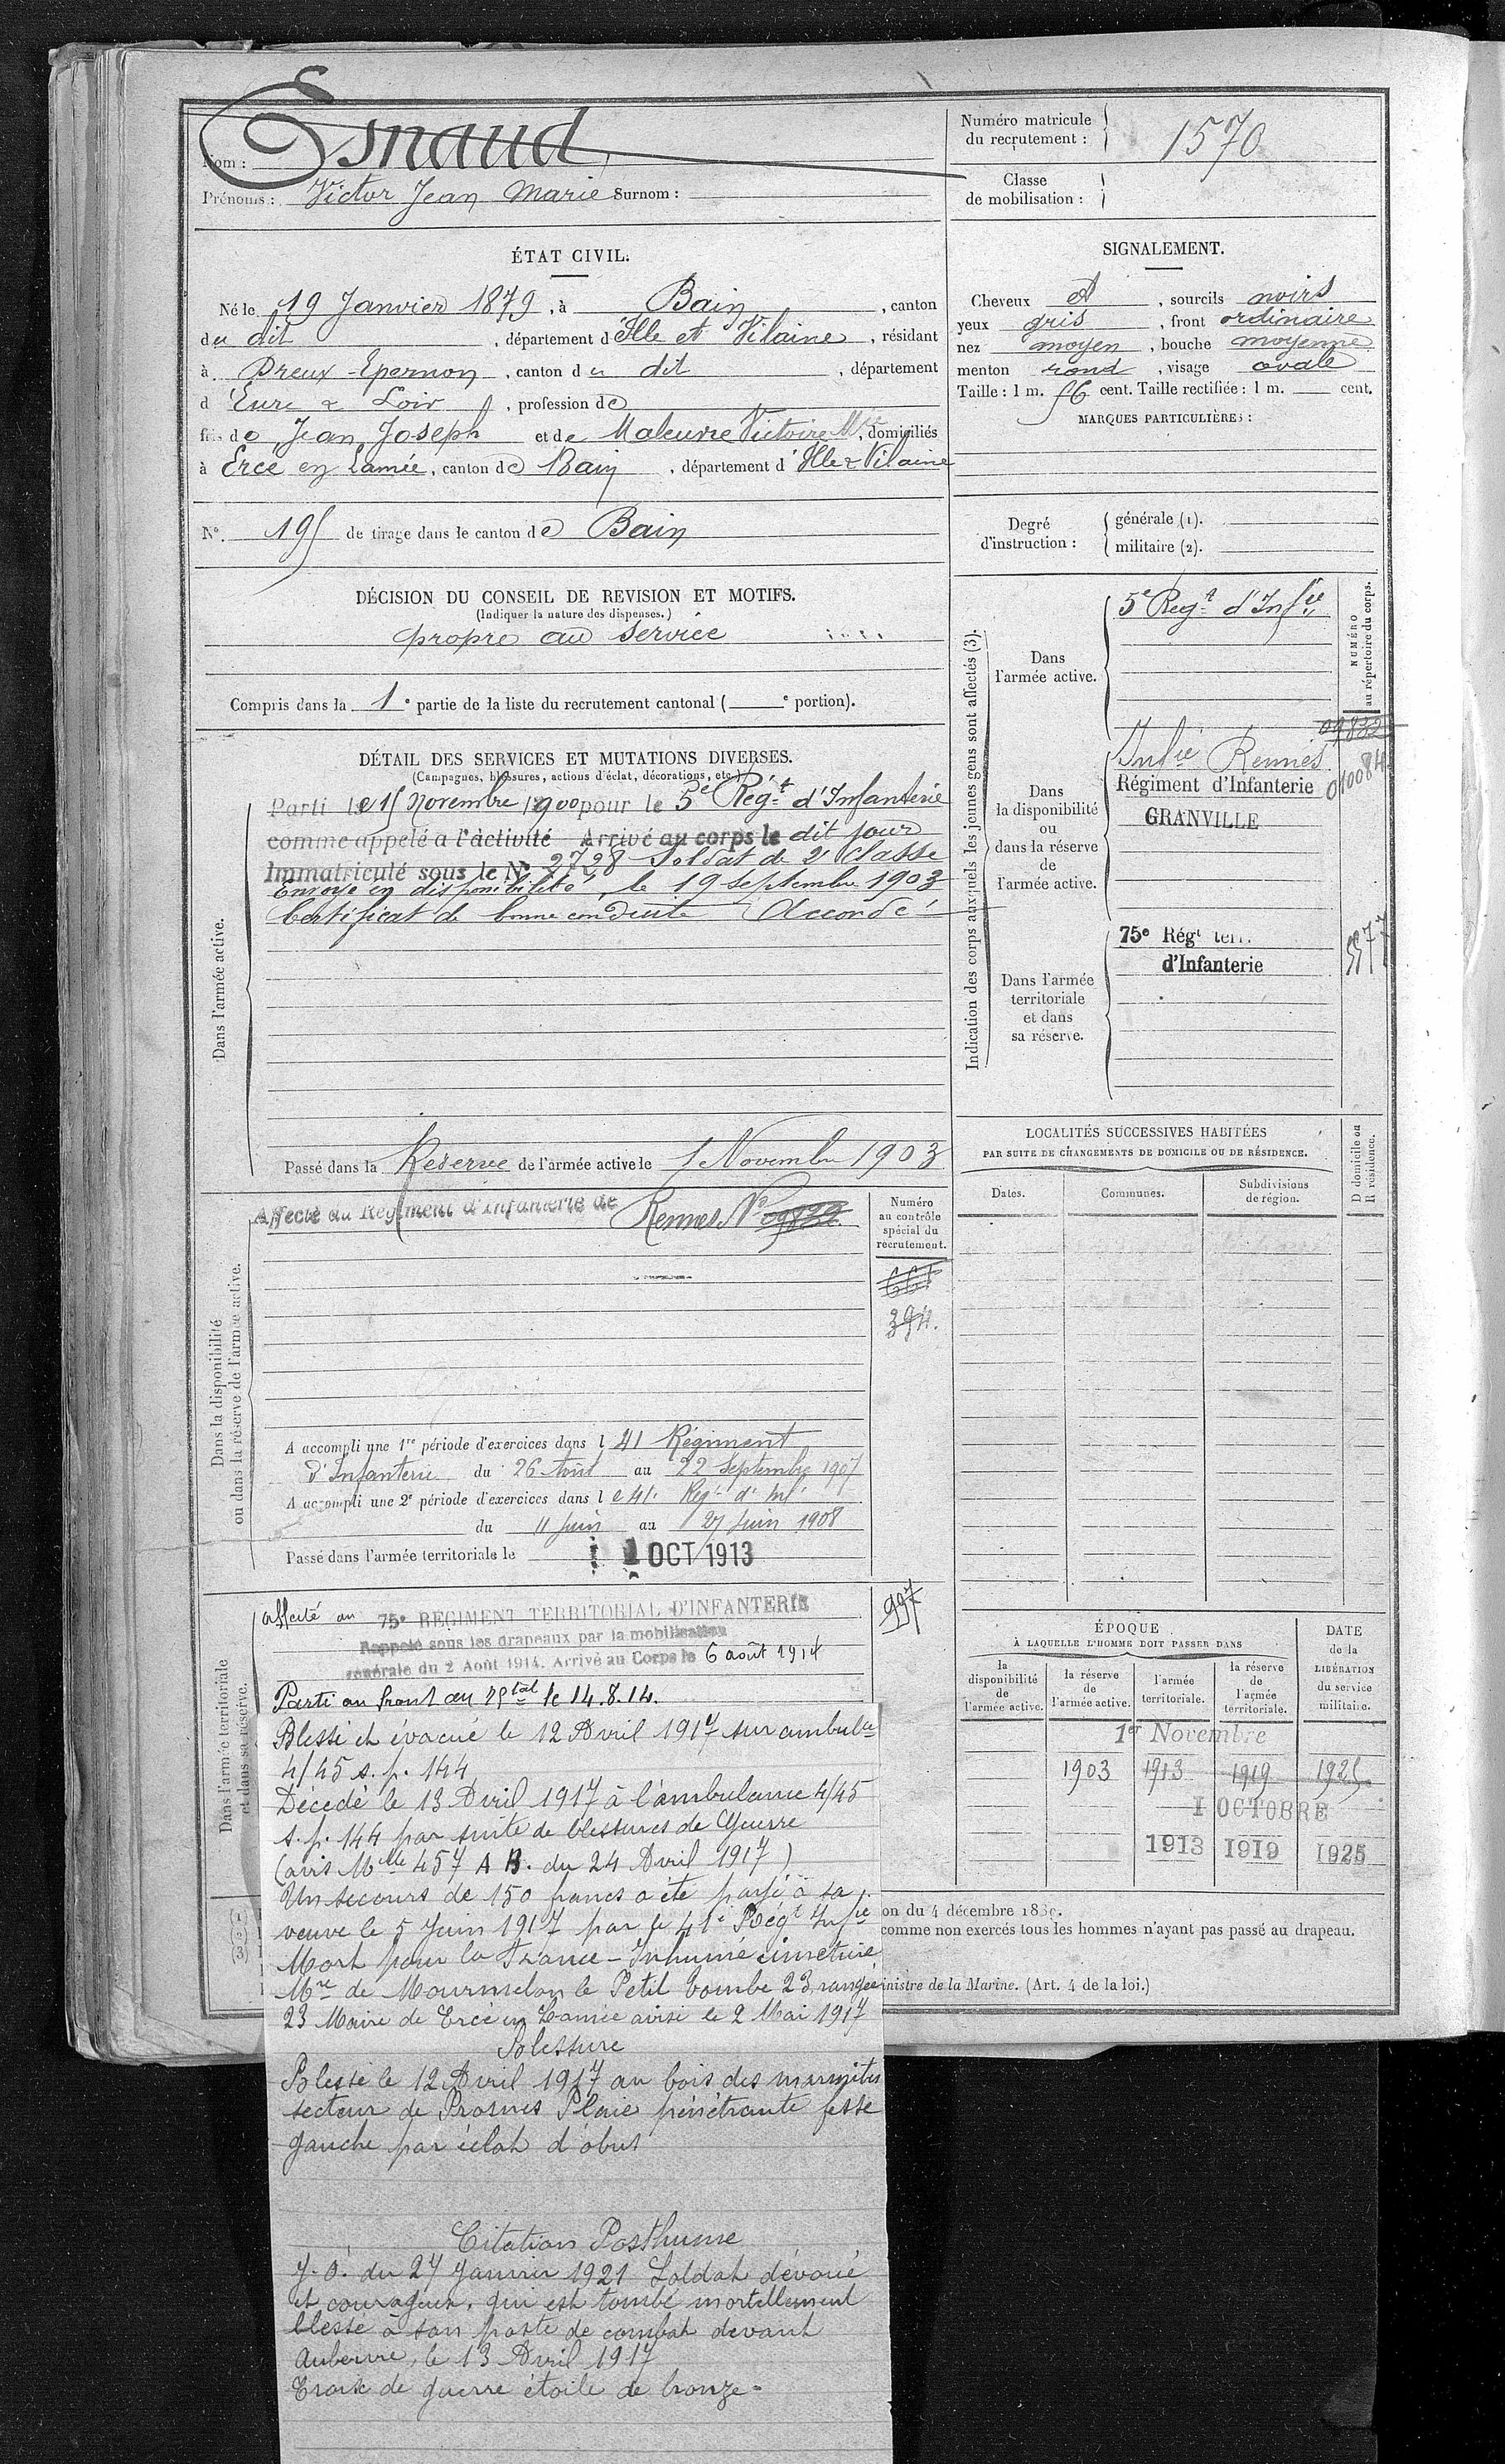 Nom : Esnaud
Prénoms : Victor Jean Marie Surnom :
Numéro matricule du recrutement : 1570
Classe de mobilisation :
ÉTAT CIVIL.
Né le 19 Janvier 1879, à Bain, canton
du dit, département d'Ille et Vilaine, résidant
à Dreux-Epernon, canton du dit, département
d'Eure & Loir, profession de
fils de Jean Joseph et de Maleuvre Victoire Mie, domiciliés
à Ercé en Lamée, canton de Bain, département d'Ille & Vilaine
N° 195 de tirage dans le canton de Bain
SIGNALEMENT.
Cheveux et, sourcils noirs
yeux gris, front ordinaire
nez moyen, bouche moyenne
menton rond, visage ovale
Taille : 1 m. 56 cent. Taille rectifiée : 1 m. cent.
MARQUES PARTICULIÈRES :
Degré d'instruction :
générale (1).
militaire (2).
DÉCISION DU CONSEIL DE REVISION ET MOTIFS.
(Indiquer la nature des dispenses.)
propre au service
Compris dans la 1e partie de la liste du recrutement cantonal ( e portion).
DÉTAIL DES SERVICES ET MUTATIONS DIVERSES.
(Campagnes, blessures, actions d'éclat, décorations, etc.)
Dans l'armée active.
Parti le 15 Novembre 1900 pour le 5e Régt d'Infanterie
comme appelé a l'activité Arrivé au corps le dit jour
Immatriculé sous le N° 2728 Soldat de 2e classe
Envoyé en disponibilité le 19 septembre 1903
Certificat de bonne conduite Accordé
Passé dans la Réserve de l'armée active le 1 Novembre 1903
Indication des corps auxquels les jeunes gens sont affectés (3).
NUMÉRO au répertoire du corps.
Dans l'armée active.
5e Regt d'Infie
Dans la disponibilité ou dans la réserve de l'armée active.
09832
Infie Rennes
Régiment d'Infanterie 010084
GRANVILLE
Dans l'armée territoriale et dans sa réserve.
75e Régt terr.
d'Infanterie
5577
Dans la disponibilité ou dans la réserve de l'armée active.
Affecté au Régiment d'Infanterie de Rennes N° 09832
Numéro au contrôle spécial du recrutement.
661
394.
A accompli une 1re période d'exercices dans l 41 Régiment
d'Infanterie du 26 Août au 22 Septembre 1907
A accompli une 2e période d'exercices dans le 41e Regt d'Inf
du 11 Juin au 27 Juin 1908
Passé dans l'armée territoriale le 1 OCT 1913
LOCALITÉS SUCCESSIVES HABITÉES
PAR SUITE DE CHANGEMENTS DE DOMICILE OU DE RÉSIDENCE.
Dates. Communes. Subdivisions de région.
D domicile ou R résidence.
Dans l'armée territoriale et dans sa réserve.
affecté au 75e REGIMENT TERRITORIAL D'INFANTERIE
997
Rappelé sous les drapeaux par la mobilisation
générale du 2 Août 1914. Arrivé au Corps le 6 août 1914
Parti au front au 75tal le 14.8.14.
Blessé et évacué le 12 Avril 1917 sur ambulce
4/45 s.p. 144
Décédé le 13 Avril 1917 à l'ambulance 4/45
s.p. 144 par suite de blessures de Guerre
(avis Mlle 457 A B. du 24 Avril 1917)
Un secours de 150 francs a été payé à sa
veuve le 5 Juin 1917 par le 41e Régt Infie
Mort pour la France - Inhumé cimetière
Mre de Mourmelon le Petit tombe 23 rangée
23 Maire de Ercé en Lamée avisé le 2 Mai 1917
Blessure
Blessé le 12 Avril 1917 au bois des marmites
secteur de Prosnes Plaie pénétrante fesse
gauche par éclat d'obus
Citation Posthume
J.O. du 27 Janvier 1921 Soldat dévoué
et courageux, qui est tombé mortellement
blessé à son poste de combat devant
Auberive, le 13 Avril 1917
Croix de guerre étoile de bronze.
ÉPOQUE
À LAQUELLE L'HOMME DOIT PASSER DANS
la disponibilité de l'armée active.
la réserve de l'armée active.
l'armée territoriale.
la réserve de l'armée territoriale.
DATE de la LIBÉRATION du service militaire.
1er Novembre
1903 1913 1919 1925
1 OCTOBRE
1913 1919 1925
on du 4 décembre 1889.
comme non exercés tous les hommes n'ayant pas passé au drapeau.
inistre de la Marine. (Art. 4 de la loi.)